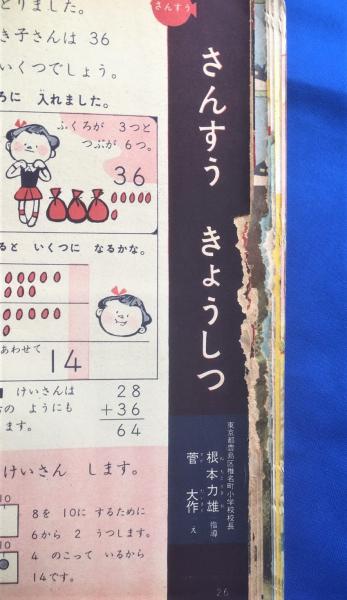 さんすう
さんすう きょうしつ
東京都豊島区椎名町小学校校長
根本力雄 指導
菅 大作 え
とりました。
き子さんは 36
いくつでしょう。
ろに 入れました。
ふくろが 3つと
つぶが 6つ。
36
ると いくつに なるかな。
あわせて
14
けいさんは
のようにも
ます。
28
+36
64
けいさん します。
10
10
8を 10に するために
6から 2 うつします。
4 のこって いるから
14です。
26